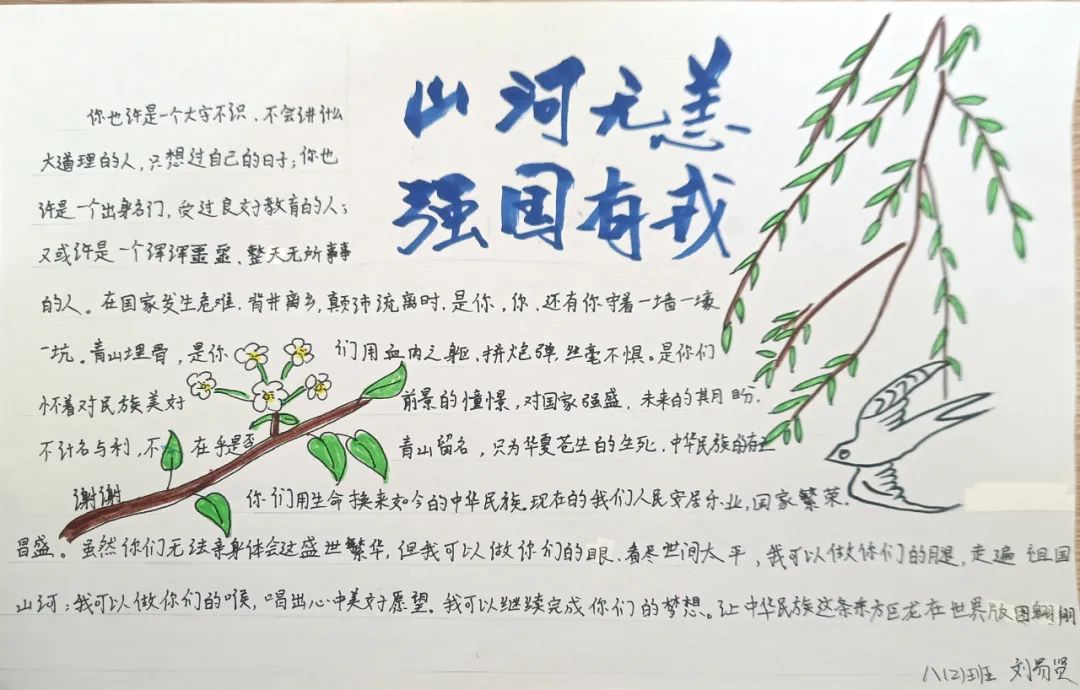 山河无恙
强国有我
你也许是一个大字不识、不会讲什么
大道理的人，只想过自己的日子；你也
许是一个出身名门，受过良好教育的人；
又或许是一个浑浑噩噩、整天无所事事
的人。在国家发生危难、背井离乡，颠沛流离时，是你，你，还有你守着一墙一壕
一坑。青山埋骨，是你们用血肉之躯，拼炮弹，丝毫不惧。是你们
怀着对民族美好前景的憧憬，对国家强盛、未来的期盼。
不计名与利，不在乎是否青山留名，只为华夏苍生的生死，中华民族的
谢谢你们用生命换来如今的中华民族。现在的我们人民安居乐业，国家繁荣
昌盛。虽然你们无法亲身体会这盛世繁华，但我可以做你们的眼、看尽世间太平，我可以做你们的腿，走遍祖国
山河；我可以做你们的喉，唱出心中美好愿望。我可以继续完成你们的梦想。让中华民族这条东方巨龙在世界版图翱翔
八(2)班 刘易贤